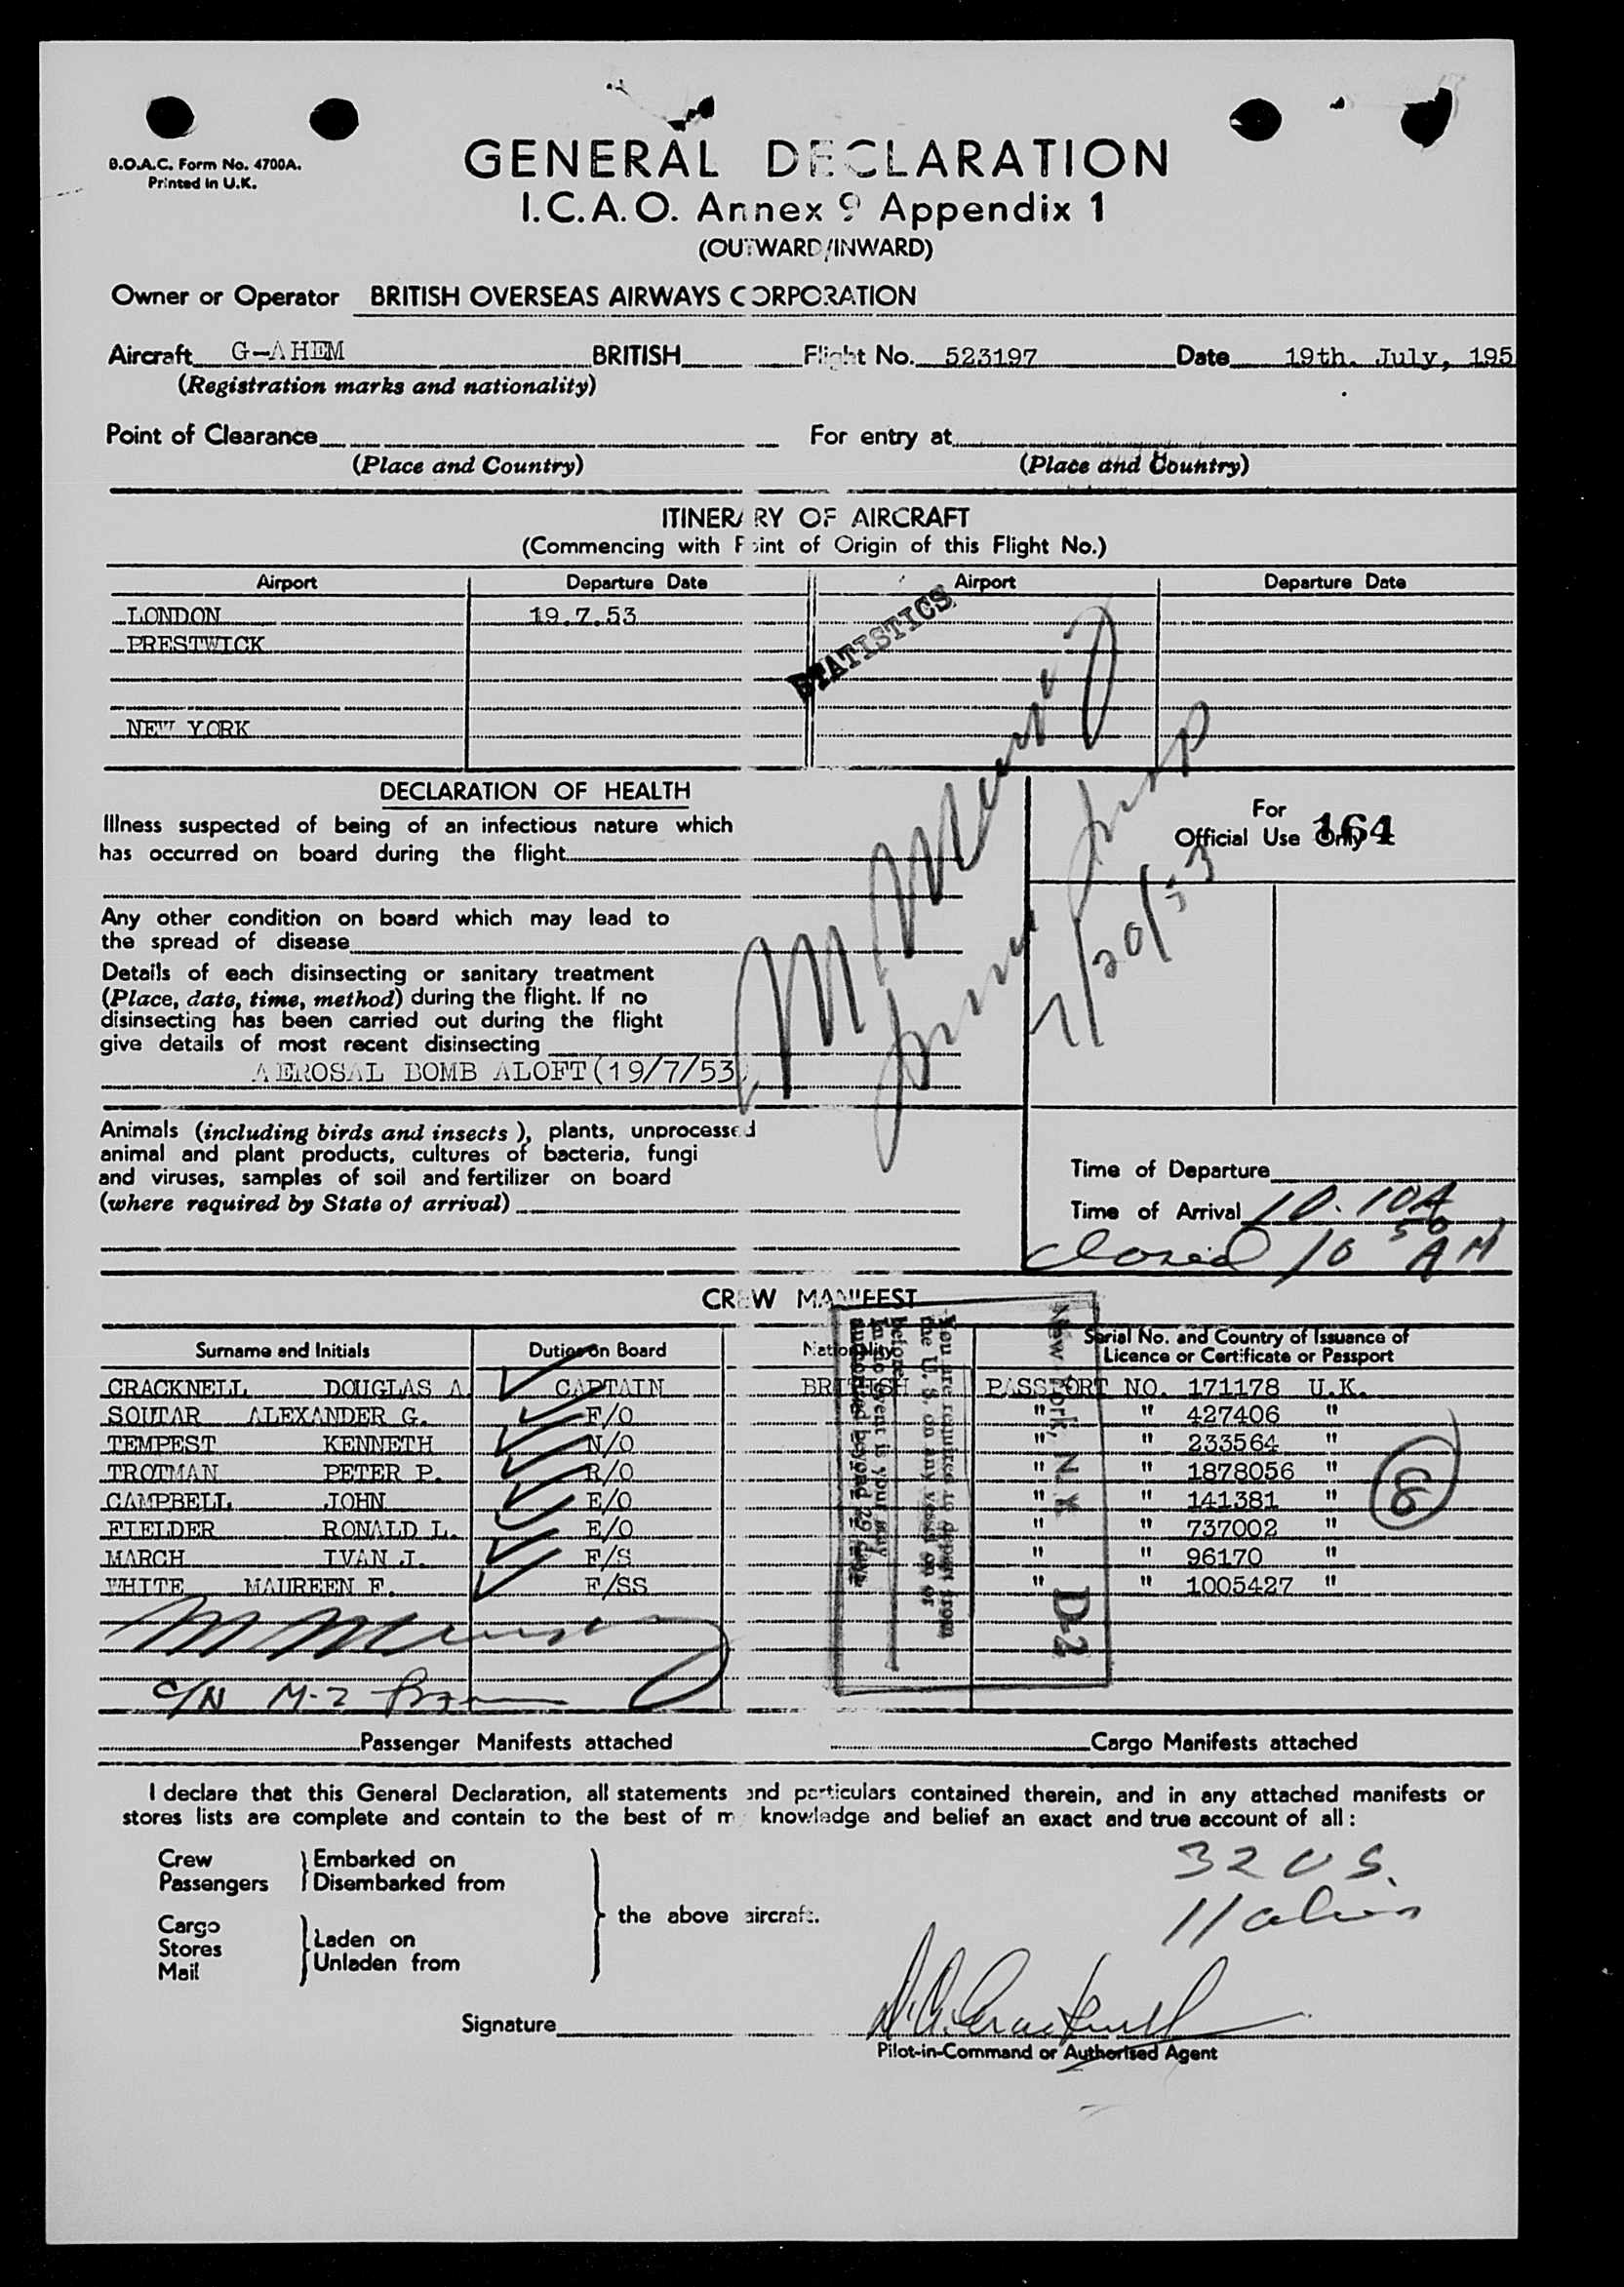 B.O.A.C. Form No. 4700A.
Printed in U.K.
GENERAL DECLARATION
I.C.A.O. Annex 9 Appendix 1
(OUTWARD/INWARD)
Owner or Operator BRITISH OVERSEAS AIRWAYS CORPORATION
Aircraft G-AHEM BRITISH Flight No. 523197 Date 19th. July, 195
(Registration marks and nationality)
Point of Clearance For entry at
(Place and Country) (Place and Country)
ITINERARY OF AIRCRAFT
(Commencing with Point of Origin of this Flight No.)
Airport Departure Date Airport Departure Date
LONDON 19.7.53
PRESTWICK
STATISTICS
NEW YORK
DECLARATION OF HEALTH
Illness suspected of being of an infectious nature which
has occurred on board during the flight
For
Official Use Only 164
7/20/53
Any other condition on board which may lead to
the spread of disease
Details of each disinsecting or sanitary treatment
(Place, date, time, method) during the flight. If no
disinsecting has been carried out during the flight
give details of most recent disinsecting
AEROSAL BOMB ALOFT(19/7/53)
Animals (including birds and insects), plants, unprocessed
animal and plant products, cultures of bacteria, fungi
and viruses, samples of soil and fertilizer on board
(where required by State of arrival)
Time of Departure
Time of Arrival 10.10A
Closed 10 50 AM
CREW MANIFEST
Surname and Initials Duties on Board Nationality Serial No. and Country of Issuance of
Licence or Certificate or Passport
CRACKNELL DOUGLAS A. CAPTAIN BRITISH PASSPORT NO. 171178 U.K.
SOUTAR ALEXANDER G. F/O " " 427406 "
TEMPEST KENNETH N/O " " 233564 "
TROTMAN PETER P. R/O " " 1878056 "
CAMPBELL JOHN E/O " " 141381 "
FIELDER RONALD L. E/O " " 737002 "
MARCH IVAN J. F/S " " 96170 "
WHITE MAUREEN F. F/SS " " 1005427 "
8
New York, N.Y. D-2
You are required to depart from
the U. S. on any vessel on or
before
In no event is your stay
authorized beyond 29 days
C/N M-2
Passenger Manifests attached Cargo Manifests attached
I declare that this General Declaration, all statements and particulars contained therein, and in any attached manifests or
stores lists are complete and contain to the best of my knowledge and belief an exact and true account of all :
Crew Embarked on
Passengers Disembarked from
the above aircraft.
Cargo
Stores
Mail
Laden on
Unladen from
32 US.
11 alien
Signature D.A. Cracknell
Pilot-in-Command or Authorised Agent